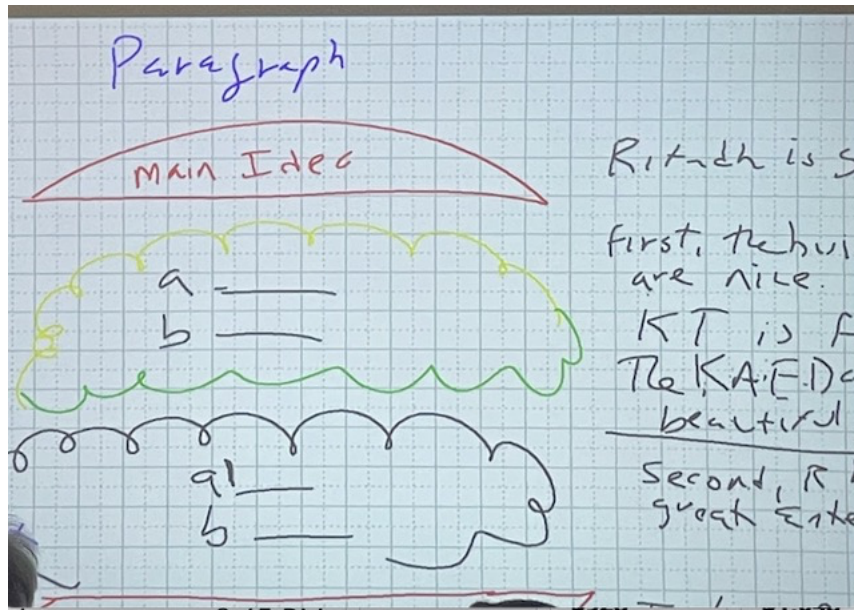 Paragraph
Main Idea
a
b
a
b
Riyadh is S
First, the bui
are nice.
KT is F
The K.A.F.D
beautiful
Second, R
great Ente